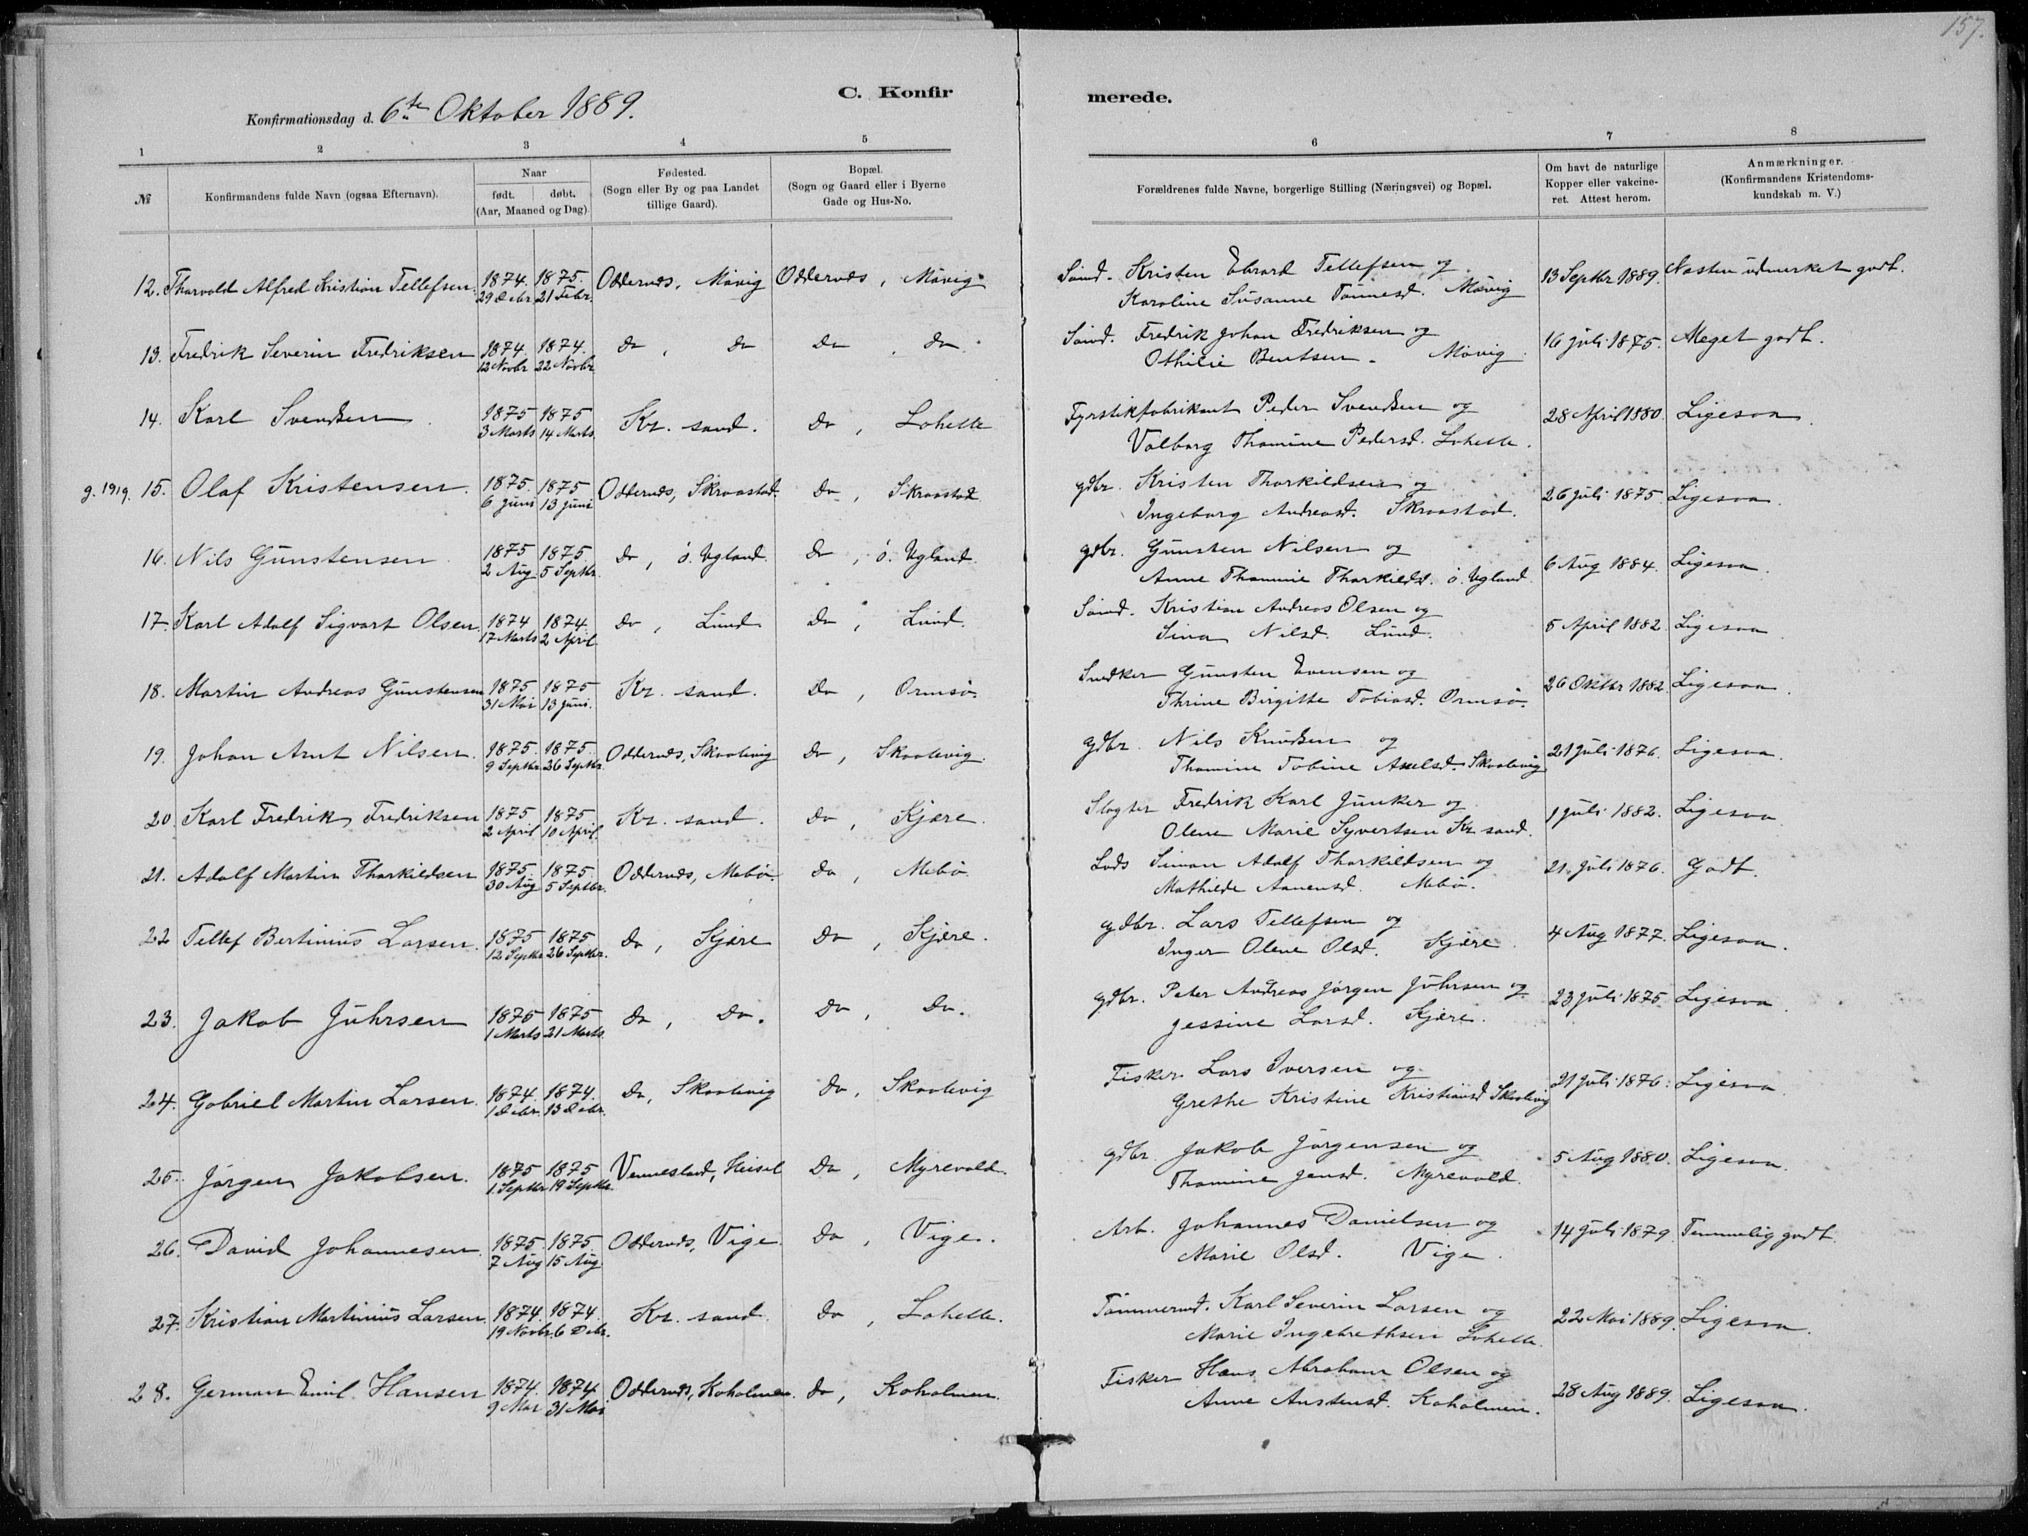 157.
C. Konfirmerede.
Konfirmationsdag d. 6te Oktober 1889.
1 2 3 4 5 6 7 8
№ Konfirmandens fulde Navn (ogsaa Efternavn). Naar født. døbt. (Aar, Maaned og Dag). Fødested. (Sogn eller By og paa Landet tillige Gaard). Bopæl. (Sogn og Gaard eller i Byerne Gade og Hus-No. Forældrenes fulde Navne, borgerlige Stilling (Næringsvei) og Bopæl. Om havt de naturlige Kopper eller vakcineret. Attest herom. Anmærkninger. (Konfirmandens Kristendomskundskab m. V.)
12. Thorvald Alfred Kristian Tellefsen 1874. 29 Debr. 1875. 21 Febr. Oddernæs, Møvig Oddernæs, Møvig Kristen Edvard Tellefsen og Karoline Susanne Tønnesd. Møvig 13 Septbr 1889. Næsten udmerket godt.
13. Fredrik Severin Fredriksen 1874. 12 Novbr 1874. 22 Novbr do, do do, do. Fredrik Johan Fredriksen og Othilie Bentsen. Møvig 16 Juli 1875. Meget godt.
14. Karl Svendsen 1875 3 Marts 1875 14 Marts Kr. sand. do, Lohelle Fyrstikfabrikant Peder Svendsen og Valborg Thomine Pedersd. Lohelle. 28 April 1880. Ligesaa.
g. 1919. 15. Olaf Kristensen. 1875. 6 Juni 1875 13 Juni Oddernæs, Skraastad. do, Skraastad gdbr. Kristen Thorkildsen og Ingeborg Andreasd. Skraastad. 26 Juli 1875. Ligesaa.
16. Nils Gunstensen 1875 2 Aug 1875 5 Septbr. do, ö. Ugland. do, ö. Ugland. gdbr. Gunsten Nilsen og Anne Thomine Thorkildsd. ö. Ugland. 6 Aug 1884. Ligesaa.
17. Karl Adolf Sigvart Olsen. 1874 17 Marts 1874. 2 April do, Lund do, Lund. Kristian Andreas Olsen og Sina Nilsd. Lund. 5 April 1882. Ligesaa.
18. Martin Andreas Gunstensen 1875. 31 Mai 1875 13 Juni. Kr. sand. do, Ormsø. Snedker Gunsten Evensen og Thrine Birgitte Tobiasd. Ormsø. 26 Oktbr 1882. Ligesaa.
19. Johan Arnt Nilsen. 1875. 9 Septbr. 1875. 26 Septbr. Oddernæs, Skaalevig do, Skaalevig. gdbr. Nils Knudsen og Thomine Tobine Axelsd. Skaalevig 21 Juli 1876. Ligesaa.
20. Karl Fredrik Fredriksen 1875 2 April 1875 10 April. Kr. sand. do, Kjære. Slagter Fredrik Karl Junker og Olene Marie Syvertsen Kr. sand. 1 Juli 1882. Ligesaa.
21. Adolf Martin Thorkildsen 1875. 30 Aug 1875. 5 Septbr. Oddernæs, Mebø. do, Mebø. Lods Simon Adolf Thorkildsen og Mathilde Aanensd. Mebø. 21 Juli 1876. Godt.
22 Tellef Bertinius Larsen. 1875 12 Septbr 1875 26 Septbr. do, Kjære do, Kjære. gdbr. Lars Tellefsen og Inger Olene Olsd. Kjære. 4 Aug 1877. Ligesaa.
23. Jakob Juhrsen 1875 1 Marts 1875 21 Marts. do, do. do, do. gdbr. Peter Andreas Jørgen Juhrsen og Jessine Larsd. Kjære. 23 Juli 1875. Ligesaa.
24. Gabriel Martin Larsen. 1874. 1 Debr. 1874. 13 Debr. do, Skaalevig do, Skaalevig Fisker Lars Iversen og Grethe Kristine Kristiansd Skaalevig 21 Juli 1876. Ligesaa.
25. Jørgen Jakobsen. 1875 1 Septbr 1875 19 Septbr. Vennesland, Heisel do, Myrevold. gdbr. Jakob Jørgensen og Thomine Jensd. Myrevold. 5 Aug 1880. Ligesaa.
26. David Johannesen. 1875. 7 Aug 1875 15 Aug. Oddernæs, Vige. do, Vige. Arb. Johannes Danielsen og Marie Olsd. Vige. 14 Juli 1879. Temmelig godt.
27. Kristian Martinius Larsen. 1874. 19 Novbr. 1874. 6 Debr. Kr. sand. do, Lohelle. Tømmermd. Karl Severin Larsen og Marie Ingebrethsen Lohelle. 22 Mai 1889. Ligesaa.
28. German Emil Hansen 1874. 9 Mai 1874 31 Mai Oddernæs, Koholmen. do, Koholmen. Fisker Hans Abraham Olsen og Anne Anstensd. Koholmen. 28 Aug 1889. Ligesaa.